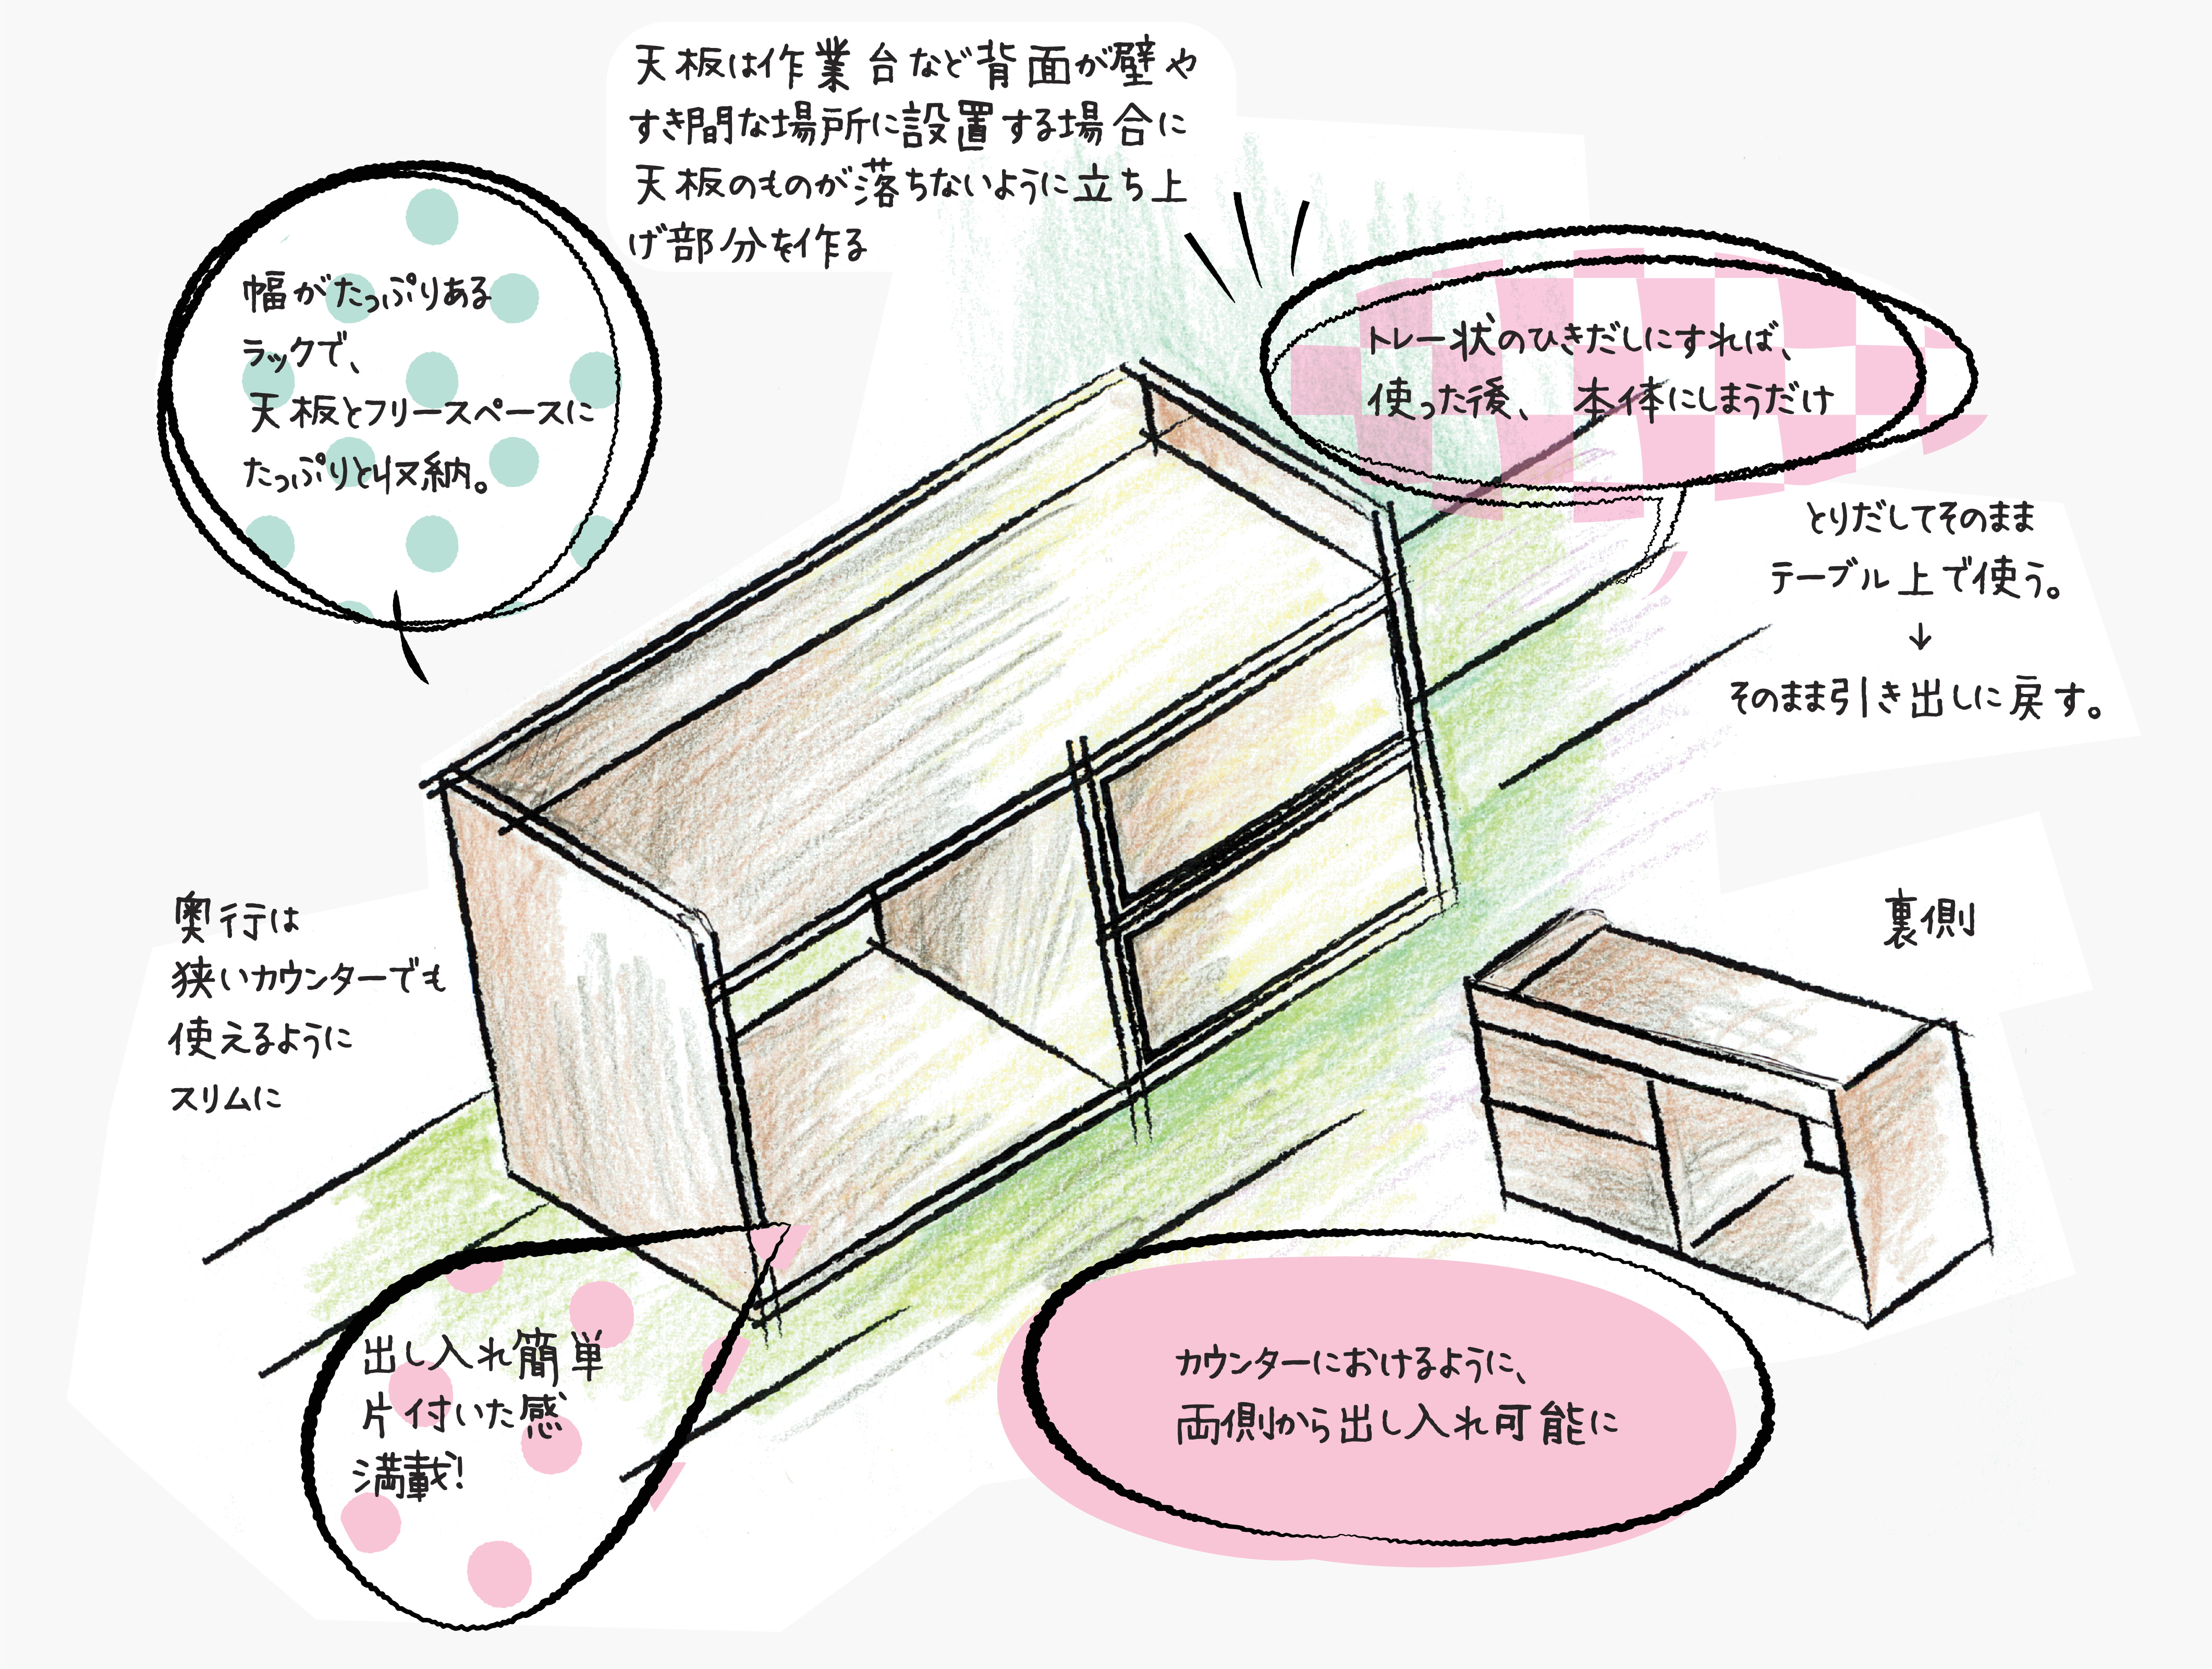 天板は作業台など背面が壁や
すき間な場所に設置する場合に
天板のものが落ちないように立ち上
げ部分を作る
幅がたっぷりある
ラックで、
天板とフリースペースに
たっぷりと収納。
トレー状のひきだしにすれば、
使った後、本体にしまうだけ
とりだしてそのまま
テーブル上で使う。
↓
そのまま引き出しに戻す。
奥行は
狭いカウンターでも
使えるように
スリムに
裏側
出し入れ簡単
片付いた感
満載!
カウンターにおけるように、
両側から出し入れ可能に